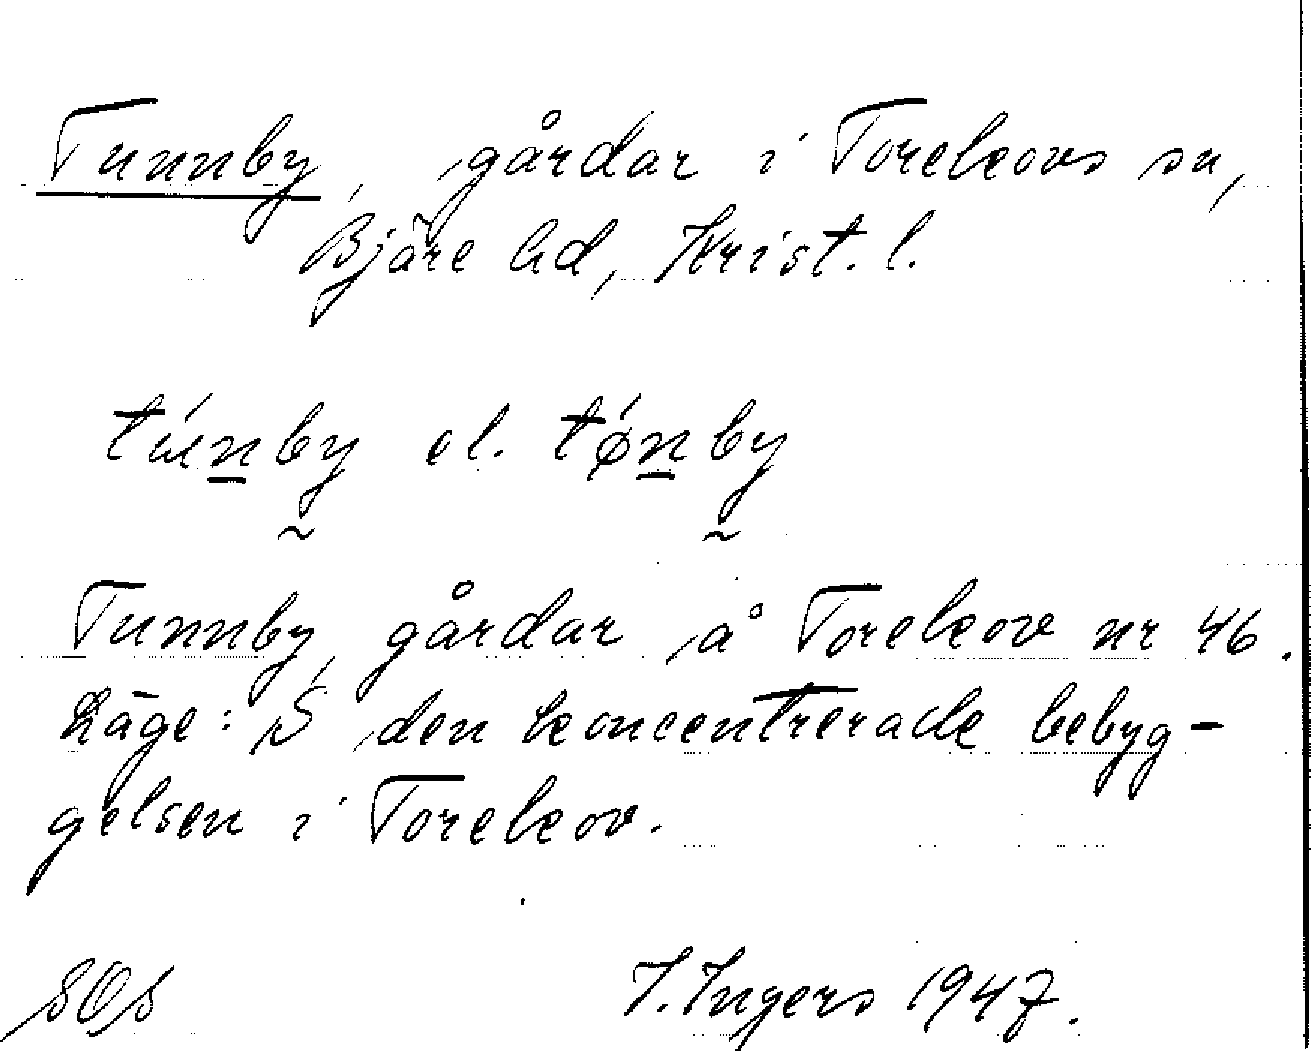 Tunnby, gårdar i Torekovs sn,
Bjäre hd, Krist. l.
túnby el. tǿnby
Tunnby, gårdar å Torekov nr 46.
Läge: S den koncentrerade bebyg-
gelsen i Torekov.
SOS I. Ingers 1947.